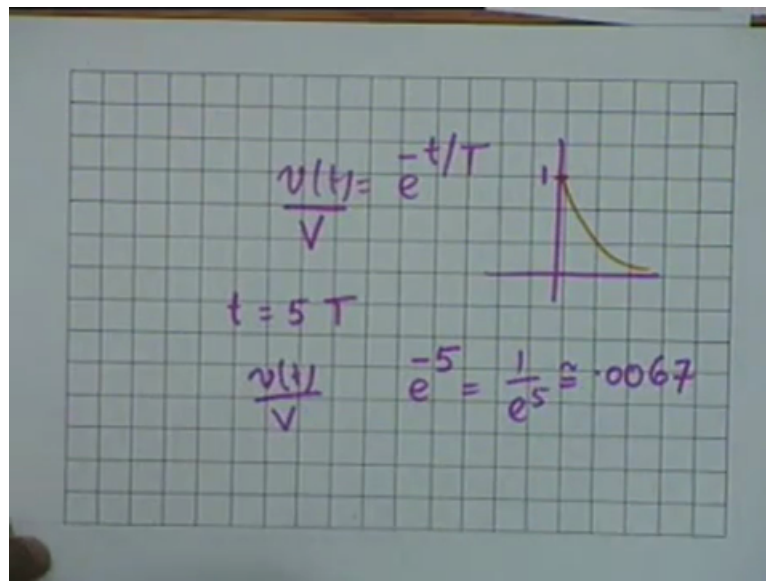 v(t)/V = e^-t/T
1
t = 5 T
v(t)/V e^-5 = 1/e^5 ≅ .0067